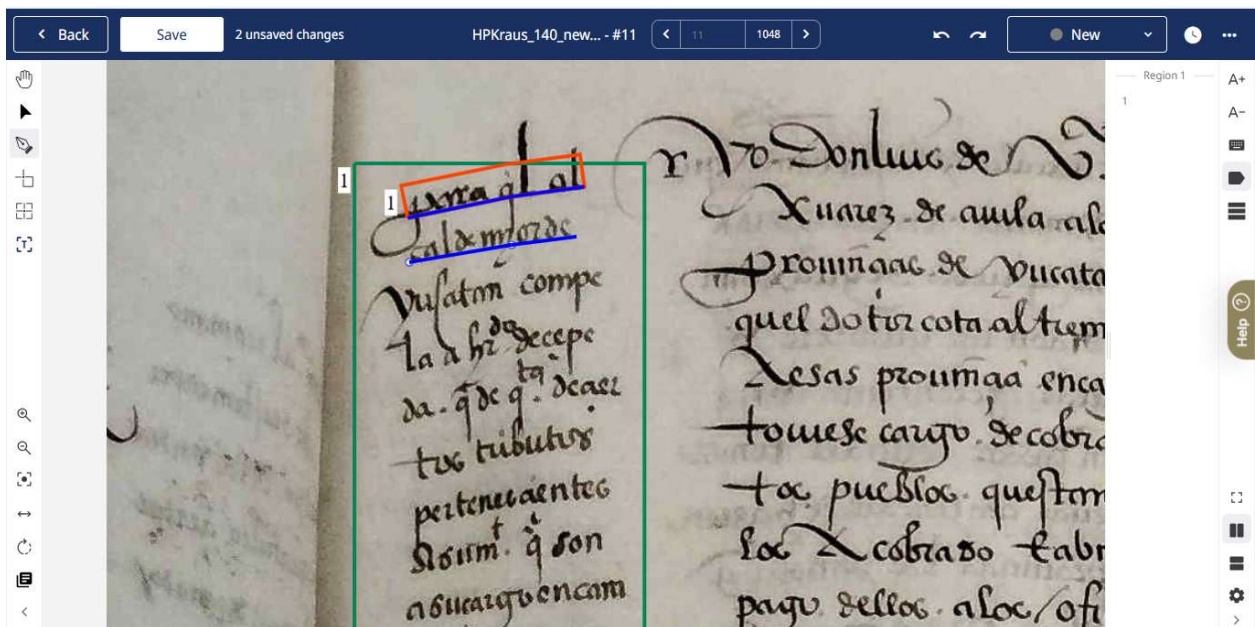 Back
Save
2 unsaved changes
HPKraus_140_new... - #11
11
1048
New
Region 1
1
A+
A-
Help
1
1
para q̃l al
calde mꝫor de
Yucatan compe
la a hrdo de cepe
da. q̃ de qta. de acer
tos tributos
pertenecientes
A su mt. q̃ son
a su cargo encom
Don luis de
Xuarez de auila alc
prouinçias de yucata
quel dotor cota al tiem
Desas prouinçia enca
tomese cargo. de cobra
tos pueblos. questan
los & cobrado
pago dellos. a los/ofi